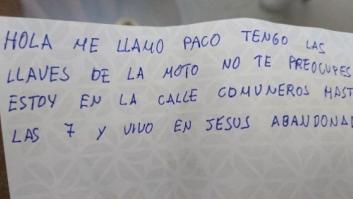 HOLA ME LLAMO PACO TENGO LAS
LLAVES DE LA MOTO NO TE PREOCUPES
ESTOY EN LA CALLE COMUNEROS HAST
LAS 7 Y VIVO EN JESUS ABANDONAD